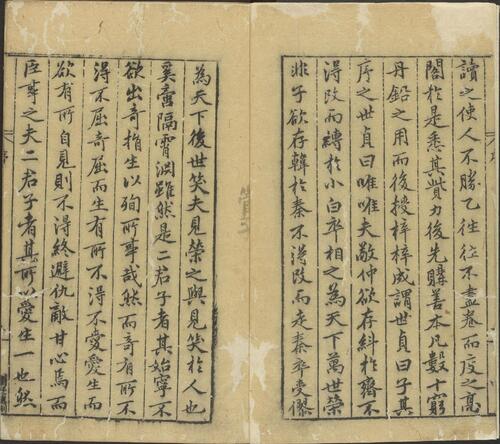 讀之使人不勝乙往往不盡卷而度之高
閣於是悉其貲力後先購善本凡數十窮
丹鉛之用而後授梓梓成謂世貞曰子其
序之世貞曰唯唯夫敬仲欲存糾於齊不
得改而縛於小白卒相之為天下萬世榮
非子欲存韓於秦不得改而走秦卒受僇
為天下後世笑夫見榮之與見笑於人也
奚啻隔霄淵雖然是二君子者其始寧不
欲出奇捐生以殉所事哉然而奇有所不
得不屈奇屈而生有所不得不愛愛生而
欲有所自見則不得終避仇敵甘心焉而
臣事之夫二君子者其所以愛生一也然